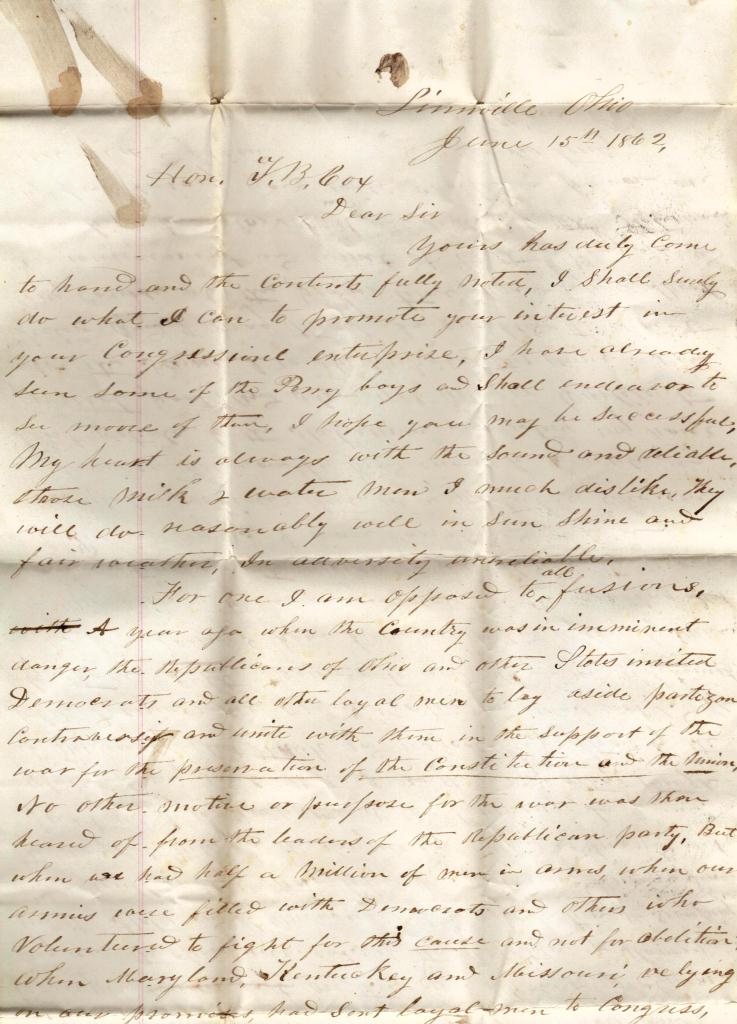 Linnville Ohio
June 15th 1862,
Hon. T. B. Cox
Dear Sir
Yours has duly Come
to hand and the Contents fully noted, I Shall Surely
do what I can to promote your interest in
your Congressional enterprise, I have already
seen some of the Perry boys and Shall endeavor to
see moore of them, I hope you may be Successful,
My heart is always with the Sound and reliable,
those Milk & water Men I much dislike, They
will do reasonably well in Sun Shine and
fair weather, In adversity unreliable,
For one I am opposed to all fusions,
with A year ago when the Country was in imminent
danger, the Republicans of Ohio and other States invited
Democrats and all other loyal men to lay aside partizan
Controversy and unite with them in the Support of the
war for the preservation of the Constitution and the Union,
No other motive or purpose for the war was then
heard of from the leaders of the Republican party, But
when we had half a Million of men in arms, when our
armies were filled with Democrats and others who
Volunteered to fight for this cause and not for abolition
when Maryland, Kentuckey and Missouri, relying
on our promises, had Sent loyal men to Congress,